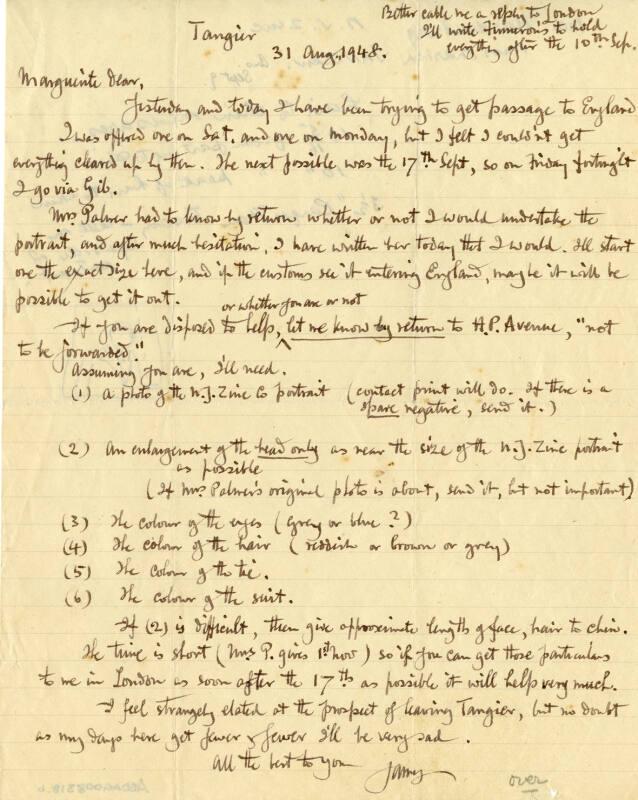 Better cable me a reply to London
I'll write Finnerons to hold
everything after the 10th Sep.
Tangier
31 Aug, 1948.
Marguerite Dear,
Yesterday and today I have been trying to get passage to England
I was offered one on Sat. and one on Monday, but I felt I couldn't get
everything cleared up by then. The next possible was the 17th Sept, so on Friday fortnight
I go via Gib.
Mrs. Palmer had to know by return whether or not I would undertake the
portrait, and after much hesitation, I have written her today that I would. I'll start
one the exact size here, and if the customs see it entering England, maybe it will be
possible to get it out.
or whether you are or not
If you are disposed to help, let me know by return to H.P. Avenue, "not
to be forwarded."
Assuming you are, I'll need.
(1) a photo of the N.J. Zinc Co portrait (contact print will do. If there is a
spare negative, send it.)
(2) An enlargement of the head only as near the size of the N.J. Zinc portrait
as possible
(If Mrs Palmer's original photo is about, send it, but not important)
(3) The colour of the eyes (grey or blue?)
(4) The colour of the hair (reddish or brown or grey)
(5) The colour of the tie.
(6) The colour of the suit.
If (2) is difficult, then give approximate length of face, hair to chin.
The time is short (Mrs P. gives 1st Nov) so if you can get those particulars
to me in London as soon after the 17th as possible it will help very much.
I feel strangely elated at the prospect of leaving Tangier, but no doubt
as my days here get fewer & fewer I'll be very sad.
All the best to you
Jamey
over